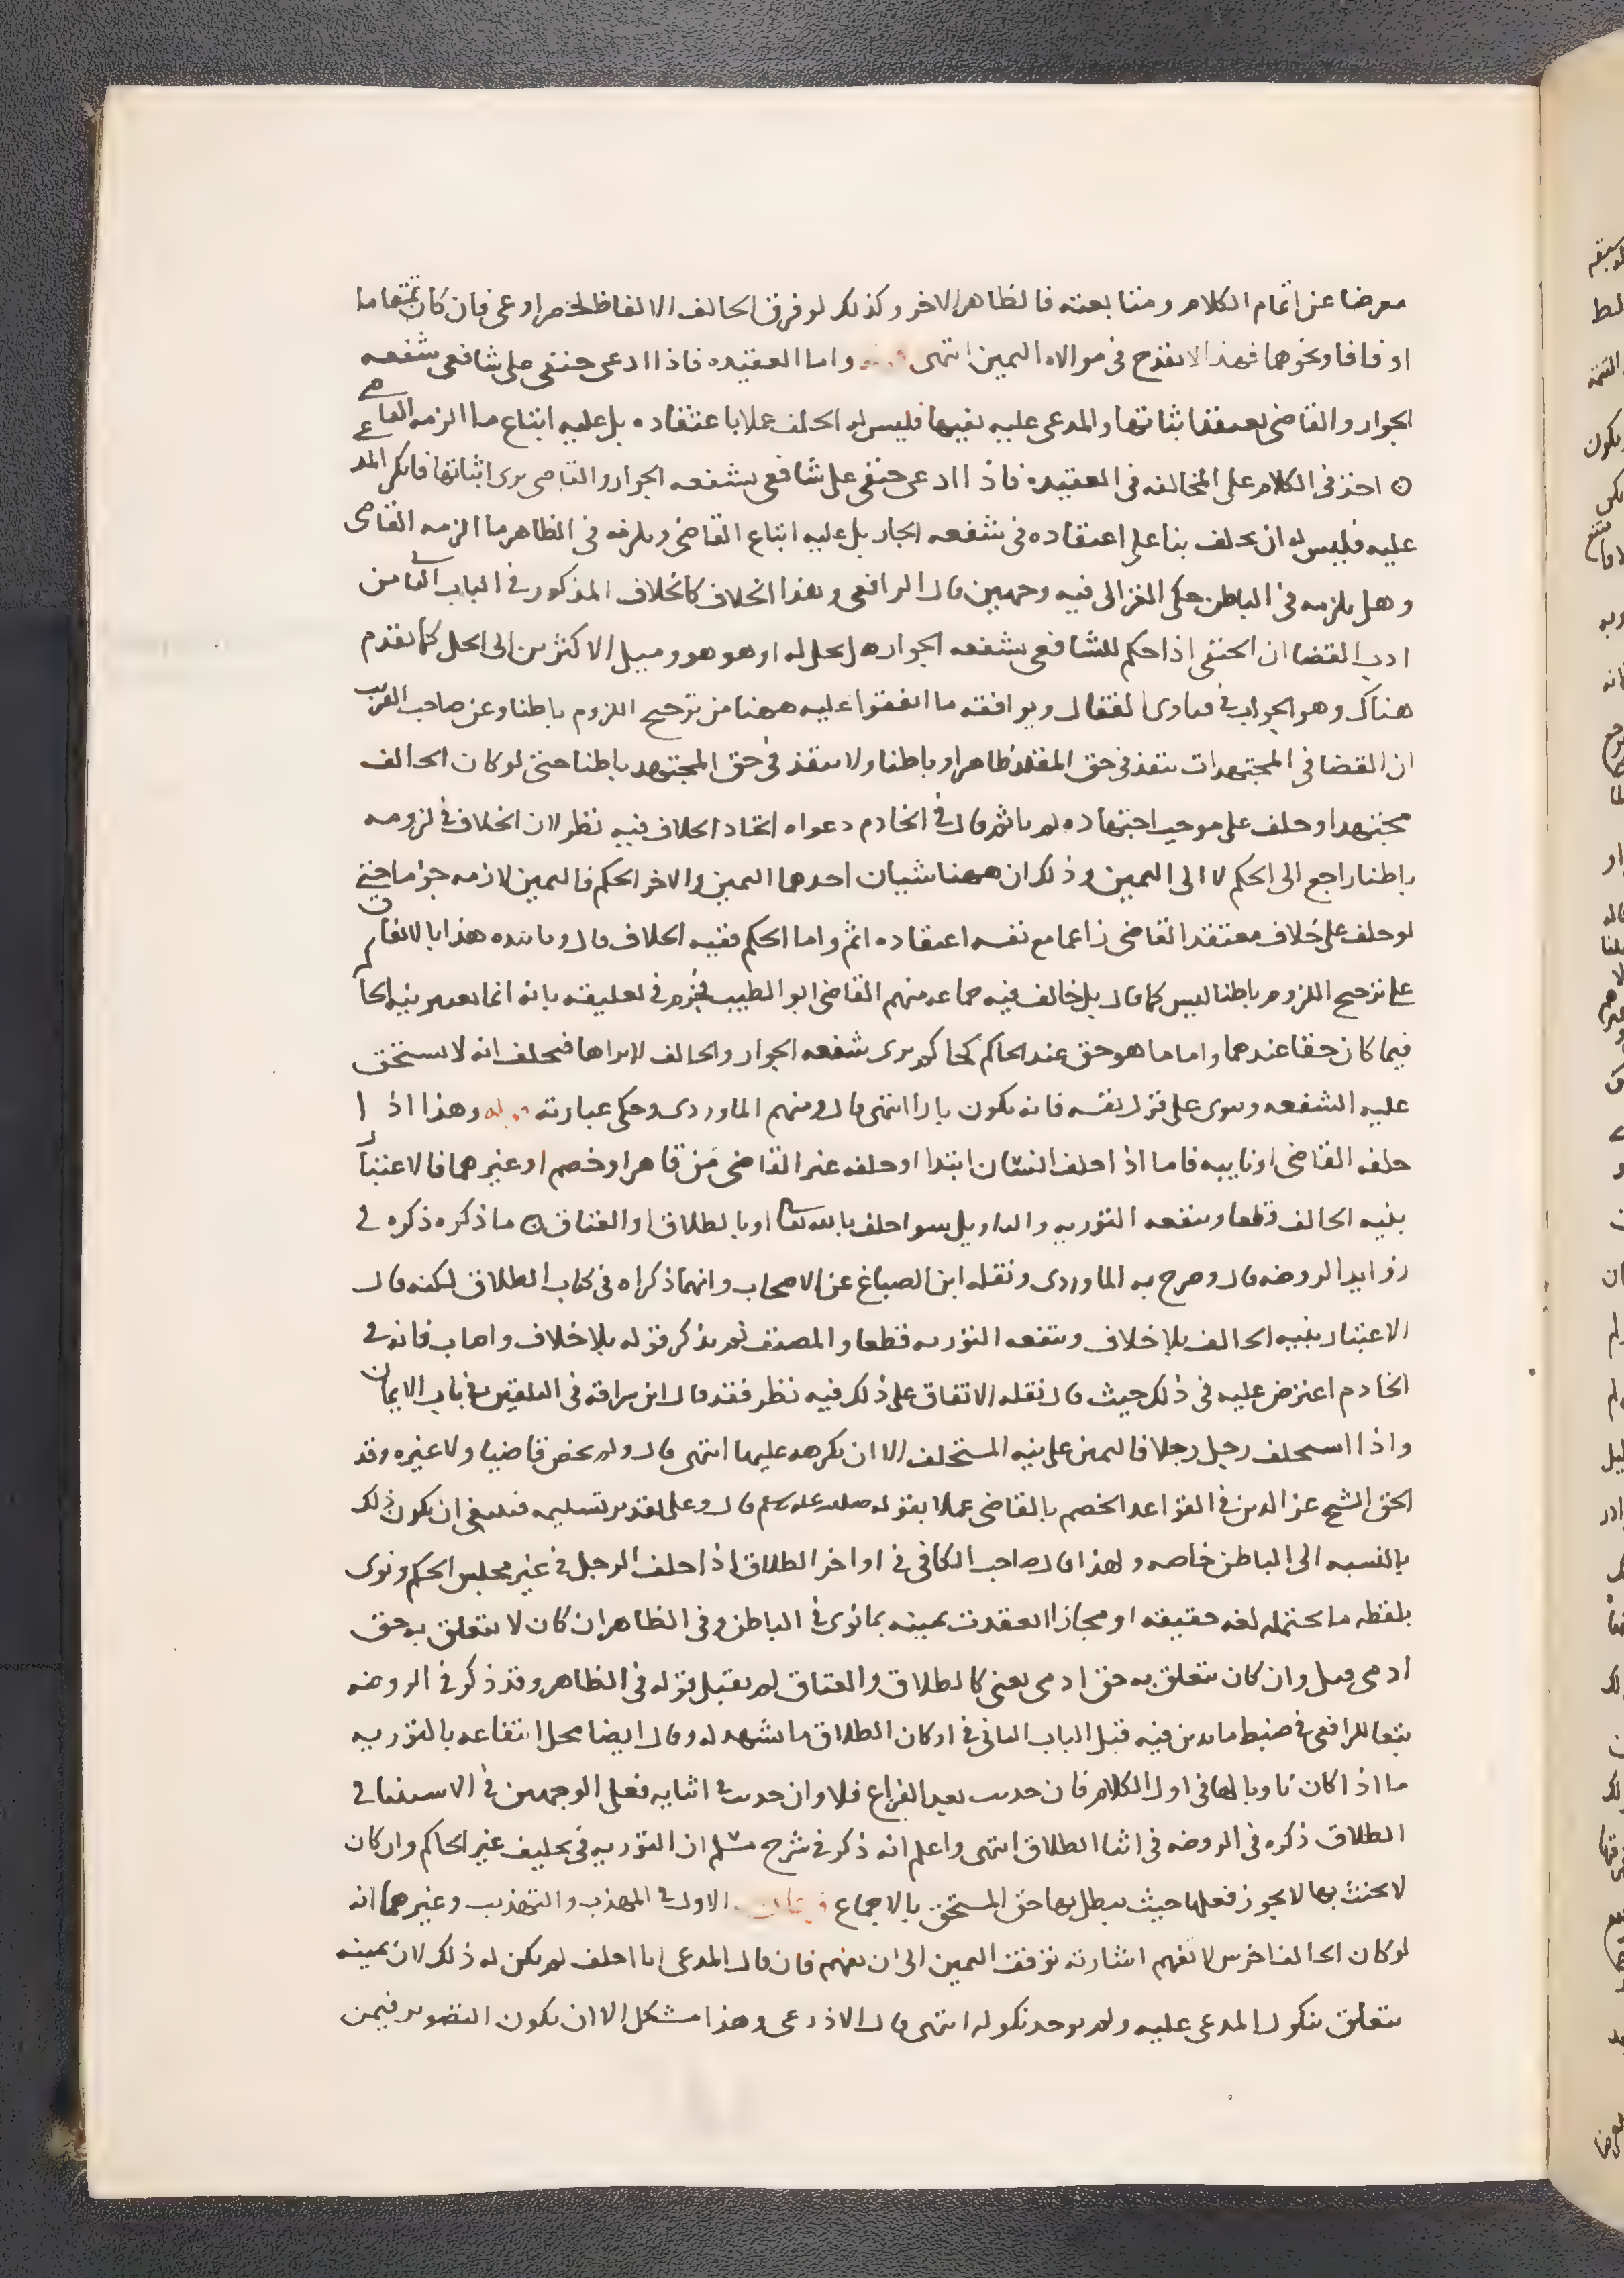 معرضا عن اتمام الكلام ومتابعته فالظاهر الاخر وكذلك لو فرق الحالف الالفاظ لحصر او عي فان كان تمتما ما
او فافا ونحوهما فهذا لا يقدح في موالاه اليمين انتهى واما العقيده فاذا ادعى حنفى على شافعى شفعه
الجوار والقاضى يعتقد اثباتها والمدعى عليه نفيها فليس له الحلف عملا باعتقاده بل عليه اتباع ما الزمه القاضي
اخذ في الكلام على المخالفه في العقيده فاذا ادعى حنفى على شافعى بشفعه الجوار والقاضى يرى اثباتها فانكر المدعى
عليه فليس له ان يحلف بنا على اعتقاده في شفعه الجار بل عليه اتباع القاضى ويلزمه في الظاهر ما الزمه القاضى
وهل يلزمه في الباطن حكى الغزالى فيه وجهين قال الرافعى وهذا الخلاف كالخلاف المذكور في الباب الثانى من
ادب القضا ان الحنفى اذا حكم للشافعى بشفعه الجوار هل يحل له او هو هو وميل الاكثرين الى الحل كما تقدم
هناك وهو الجواب في فتاوى القفال ويوافقه ما اتفقوا عليه ههنا من ترجيح اللزوم باطنا وعن صاحب التقريب
ان القضا في المجتهدات ينفذ في حق المقلد ظاهرا وباطنا ولا ينفذ في حق المجتهد باطنا حتى لو كان الحالف
مجتهدا وحلف على موجب اجتهاده لم ياثم قال في الخادم دعواه اتحاد الخلاف فيه نظر لان الخلاف في لزومه
باطنا راجع الى الحكم لا الى اليمين وذلك ان ههنا شيان احدهما اليمين والاخر الحكم فاليمين لازمه جزما حتى
لو حلف على خلاف معتقد القاضى زاعما مع نفسه اعتقاده اثم واما الحكم ففيه الخلاف قال وما هذا بالاتفاق
على ترجيح اللزوم باطنا ليس كما قال بل خالف فيه جماعه منهم القاضى ابو الطيب فجزم في تعليقه بانه انما يعتبر نيه الحاكم
فيما كان حقا عندهما واما ما هو حق عند الحاكم كحاكم يرى شفعه الجوار والحالف لا يراها فيحلف انه لا يستحق
عليه الشفعه وينوى على قول نفسه فانه يكون بارا انتهى قال ومنهم الماوردى وحكى عبارته وهذا اذا
حلفه القاضى او نايبه فاما اذا حلف انسان ابتدا او حلفه غير القاضى من قاهر او خصم او غيرهما فالاعتبار
بنيه الحالف قطعا وينفعه التوريه والتاويل سوا حلف بالله تعالى او بالطلاق او العتاق ما ذكره ذكره في
زوايد الروضه قال وصرح به الماوردى ونقله ابن الصباغ عن الاصحاب وانهما ذكراه في كتاب الطلاق لكنه قال
الاعتبار بنيه الحالف بلا خلاف وينفعه التوريه قطعا والمصنف لم يذكر قوله بلا خلاف واصاب فانه في
الخادم اعترض عليه في ذلك حيث قال نقله الاتفاق على ذلك فيه نظر فقد قال ابن سراقه في التلقين في باب الايمان
واذا استحلف رجل رجلا فاليمين على نيه المستحلف الا ان يكرهه عليها انتهى قال ولم يخص قاضيا ولا غيره وقد
الحق الشيخ عز الدين في القواعد الخصم بالقاضى عملا بقوله صلى الله عليه وسلم قال وعلى تقدير تسليمه فينبغى ان يكون ذلك
بالنسبه الى الباطن خاصه ولهذا قال صاحب الكافى في اواخر الطلاق اذا حلف الرجل في غير مجلس الحكم ونوى
بلفظه ما يحتمله لغه حقيقه او مجازا انعقدت يمينه بما نوى في الباطن وفي الظاهر ان كان لا يتعلق به حق
ادمى قبل وان كان يتعلق به حق ادمى يعنى كالطلاق والعتاق لم يقبل قوله في الظاهر وقد ذكر في الروضه
تبعا للرافعى في ضبط ما يدين فيه قبل الباب الثانى في اركان الطلاق ما يشهد له وقال ايضا محل انتفاعه بالتوريه
ما اذا كان ناويا لها في اول الكلام فان حدثت بعد الفراغ فلا وان حدثت في اثنايه فعلى الوجهين في الاستثنا في
الطلاق ذكره في الروضه في اثنا الطلاق انتهى واعلم انه ذكر في شرح مسلم ان التوريه في تحليف غير الحاكم وان كان
لا يحنث بها لا يجوز فعلها حيث يبطل بها حق المستحق بالاجماع الاول في المهذب والتهذيب وغيرهما انه
لو كان الحالف اخرس لا تفهم اشارته توقف اليمين الى ان يفهم فان قال المدعى انا احلف لم يكن له ذلك لان يمينه
يتعلق بنكول المدعى عليه ولم يوجد نكوله انتهى قال الاذرعى وهذا مشكل الا ان يكون التصوير فيمن